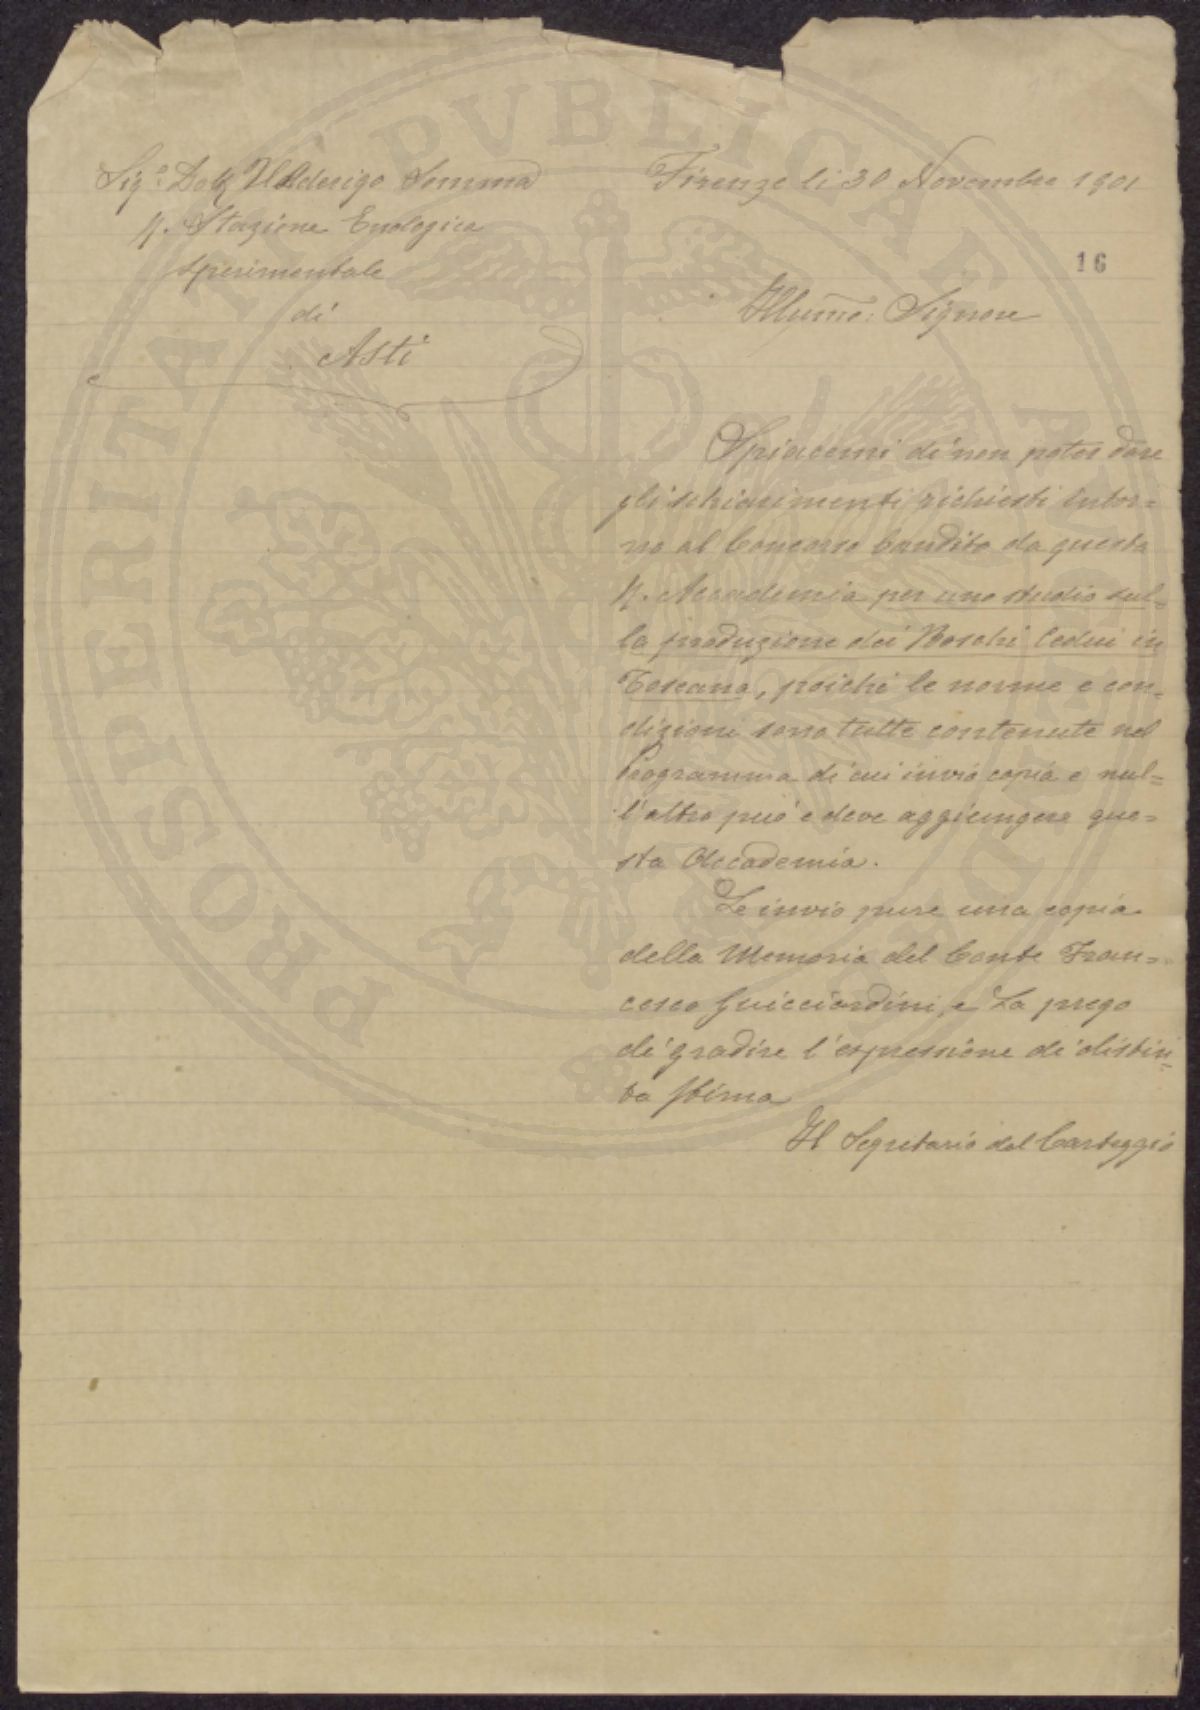 Sigr. Dott. Ulderigo Somma
R. Stazione Enologica
Sperimentale
di
Asti
Firenze li 30 Novembre 1901
16
Illumo: Signore
Spiacemi di non poter dare
gli schiarimenti richiesti intor=
no al Concorso bandito da questa
R. Accademia per uno studio sul=
la produzione dei Boschi Cedui in
Toscana, poiché le norme e con=
dizioni sono tutte contenute nel
Programma di cui invio copia e nul=
l'altro può e deve aggiungere que=
sta Accademia.
Le invio pure una copia
della Memoria del Conte Fran=
cesco Guicciardini, e La prego
di gradire l'espressione di distin=
ta stima
Il Segretario del Carteggio
PROSPERITATI PVBLICAE AVGENDAE